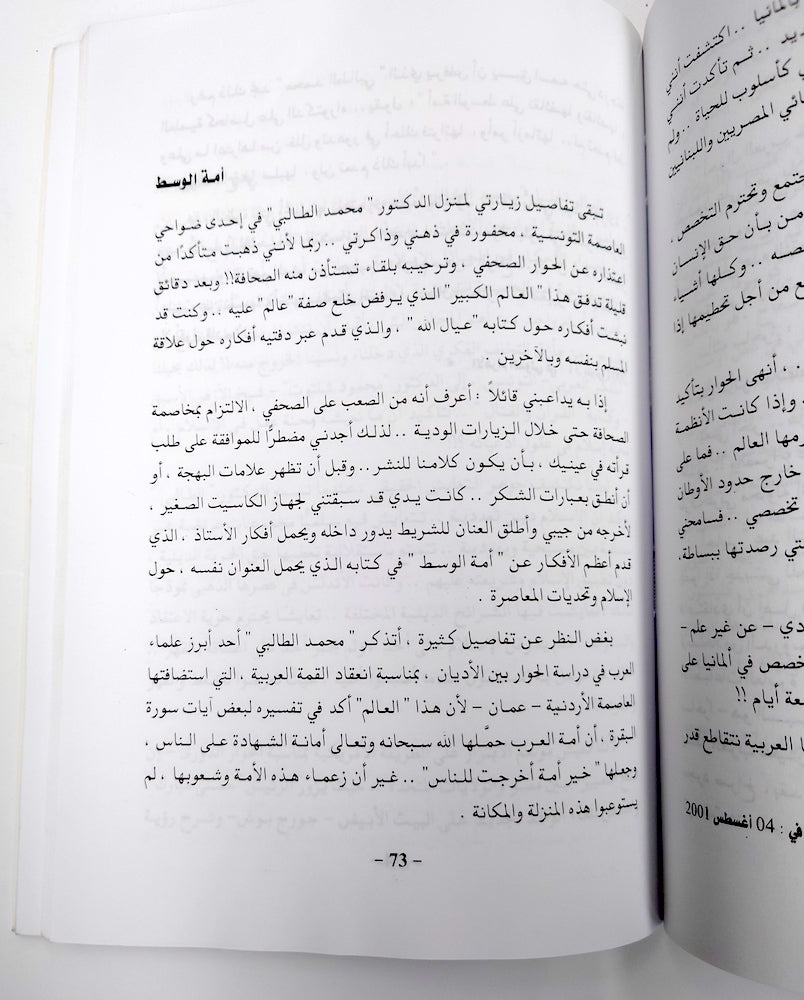 بألمانيا .. اكتشفت أنني
ديد .. ثم تأكدت أنني
كأسلوب للحياة .. ولم
ائي المصريين واللبنانيين
جتمع وتحترم التخصص ،
من بأن حق الإنسان
صصه .. وكلها أشياء
ع من أجل تحطيمها إذا
. ، أنهى الحوار بتأكيد
وإذا كانت الأنظمة
رمها العالم .. فما على
خارج حدود الأوطان
تخصصي .. فسامحني
تي رصدتها ببساطة،
دي – عن غير علم–
خصص في ألمانيا على
عة أيام !!
ا العربية تتقاطع قدر
في : 04 أغسطس 2001
أمة الوسط
تبقى تفاصيل زيارتي لمنزل الدكتور " محمد الطالبي" في إحدى ضواحي
العاصمة التونسية ، محفورة في ذهني وذاكرتي .. ربما لأنني ذهبت متأكدًا من
اعتذاره عن الحوار الصحفي ، وترحيبه بلقاء تستأذن منه الصحافة!! وبعد دقائق
قليلة تدفق هذا " العالم الكبير" الذي يرفض خلع صفة "عالم" عليه .. وكنت قد
نبشت أفكاره حول كتابه "عيال الله " ، والذي قدم عبر دفتيه أفكاره حول علاقة
المسلم بنفسه وبالآخرين .
إذا به يداعبني قائلاً : أعرف أنه من الصعب على الصحفي ، الالتزام بمخاصمة
الصحافة حتى خلال الزيارات الودية .. لذلك أجدني مضطرًّا للموافقة على طلب
قرأته في عينيك ، بأن يكون كلامنا للنشر .. وقبل أن تظهر علامات البهجة ، أو
أن أنطق بعبارات الشكر .. كانت يدي قد سبقتني لجهاز الكاسيت الصغير ،
لأخرجه من جيبي وأطلق العنان للشريط يدور داخله ويحمل أفكار الأستاذ ، الذي
قدم أعظم الأفكار عن " أمة الوسط " في كتابه الذي يحمل العنوان نفسه ، حول
الإسلام وتحديات المعاصرة .
بغض النظر عن تفاصيل كثيرة ، أتذكر " محمد الطالبي" أحد أبرز علماء
العرب في دراسة الحوار بين الأديان ، بمناسبة انعقاد القمة العربية ، التي استضافتها
العاصمة الأردنية – عمان – لأن هذا " العالم" أكد في تفسيره لبعض آيات سورة
البقرة ، أن أمة العرب حمَّلها الله سبحانه وتعالى أمانة الشهادة على الناس ،
وجعلها " خير أمة أخرجت للناس" .. غير أن زعماء هذه الأمة وشعوبها ، لم
يستوعبوا هذه المنزلة والمكانة .
– 73 –